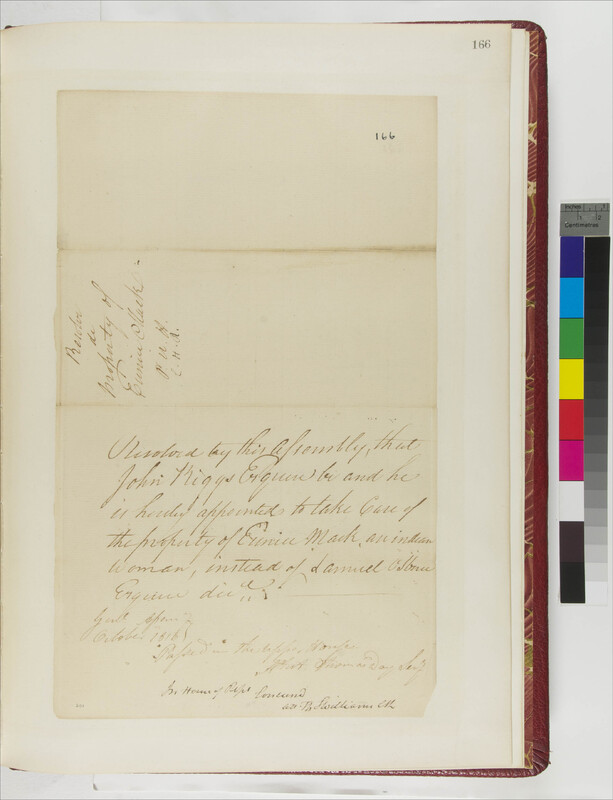 166
166
Resolve
property of
Eunice Mack
P. U. H.
C. H. R.
Resolved by this Assembly, that
John Riggs Esquire be and he
is hereby appointed to take Care of
the property of Eunice Mack, an indian
woman, instead of Samuel
Esquire
Genl.
October 1816
Passed in the upper House
Attest Thomas Day Secy
In House of Reps Concurd
att Williams Clk
Inches
Centimetres